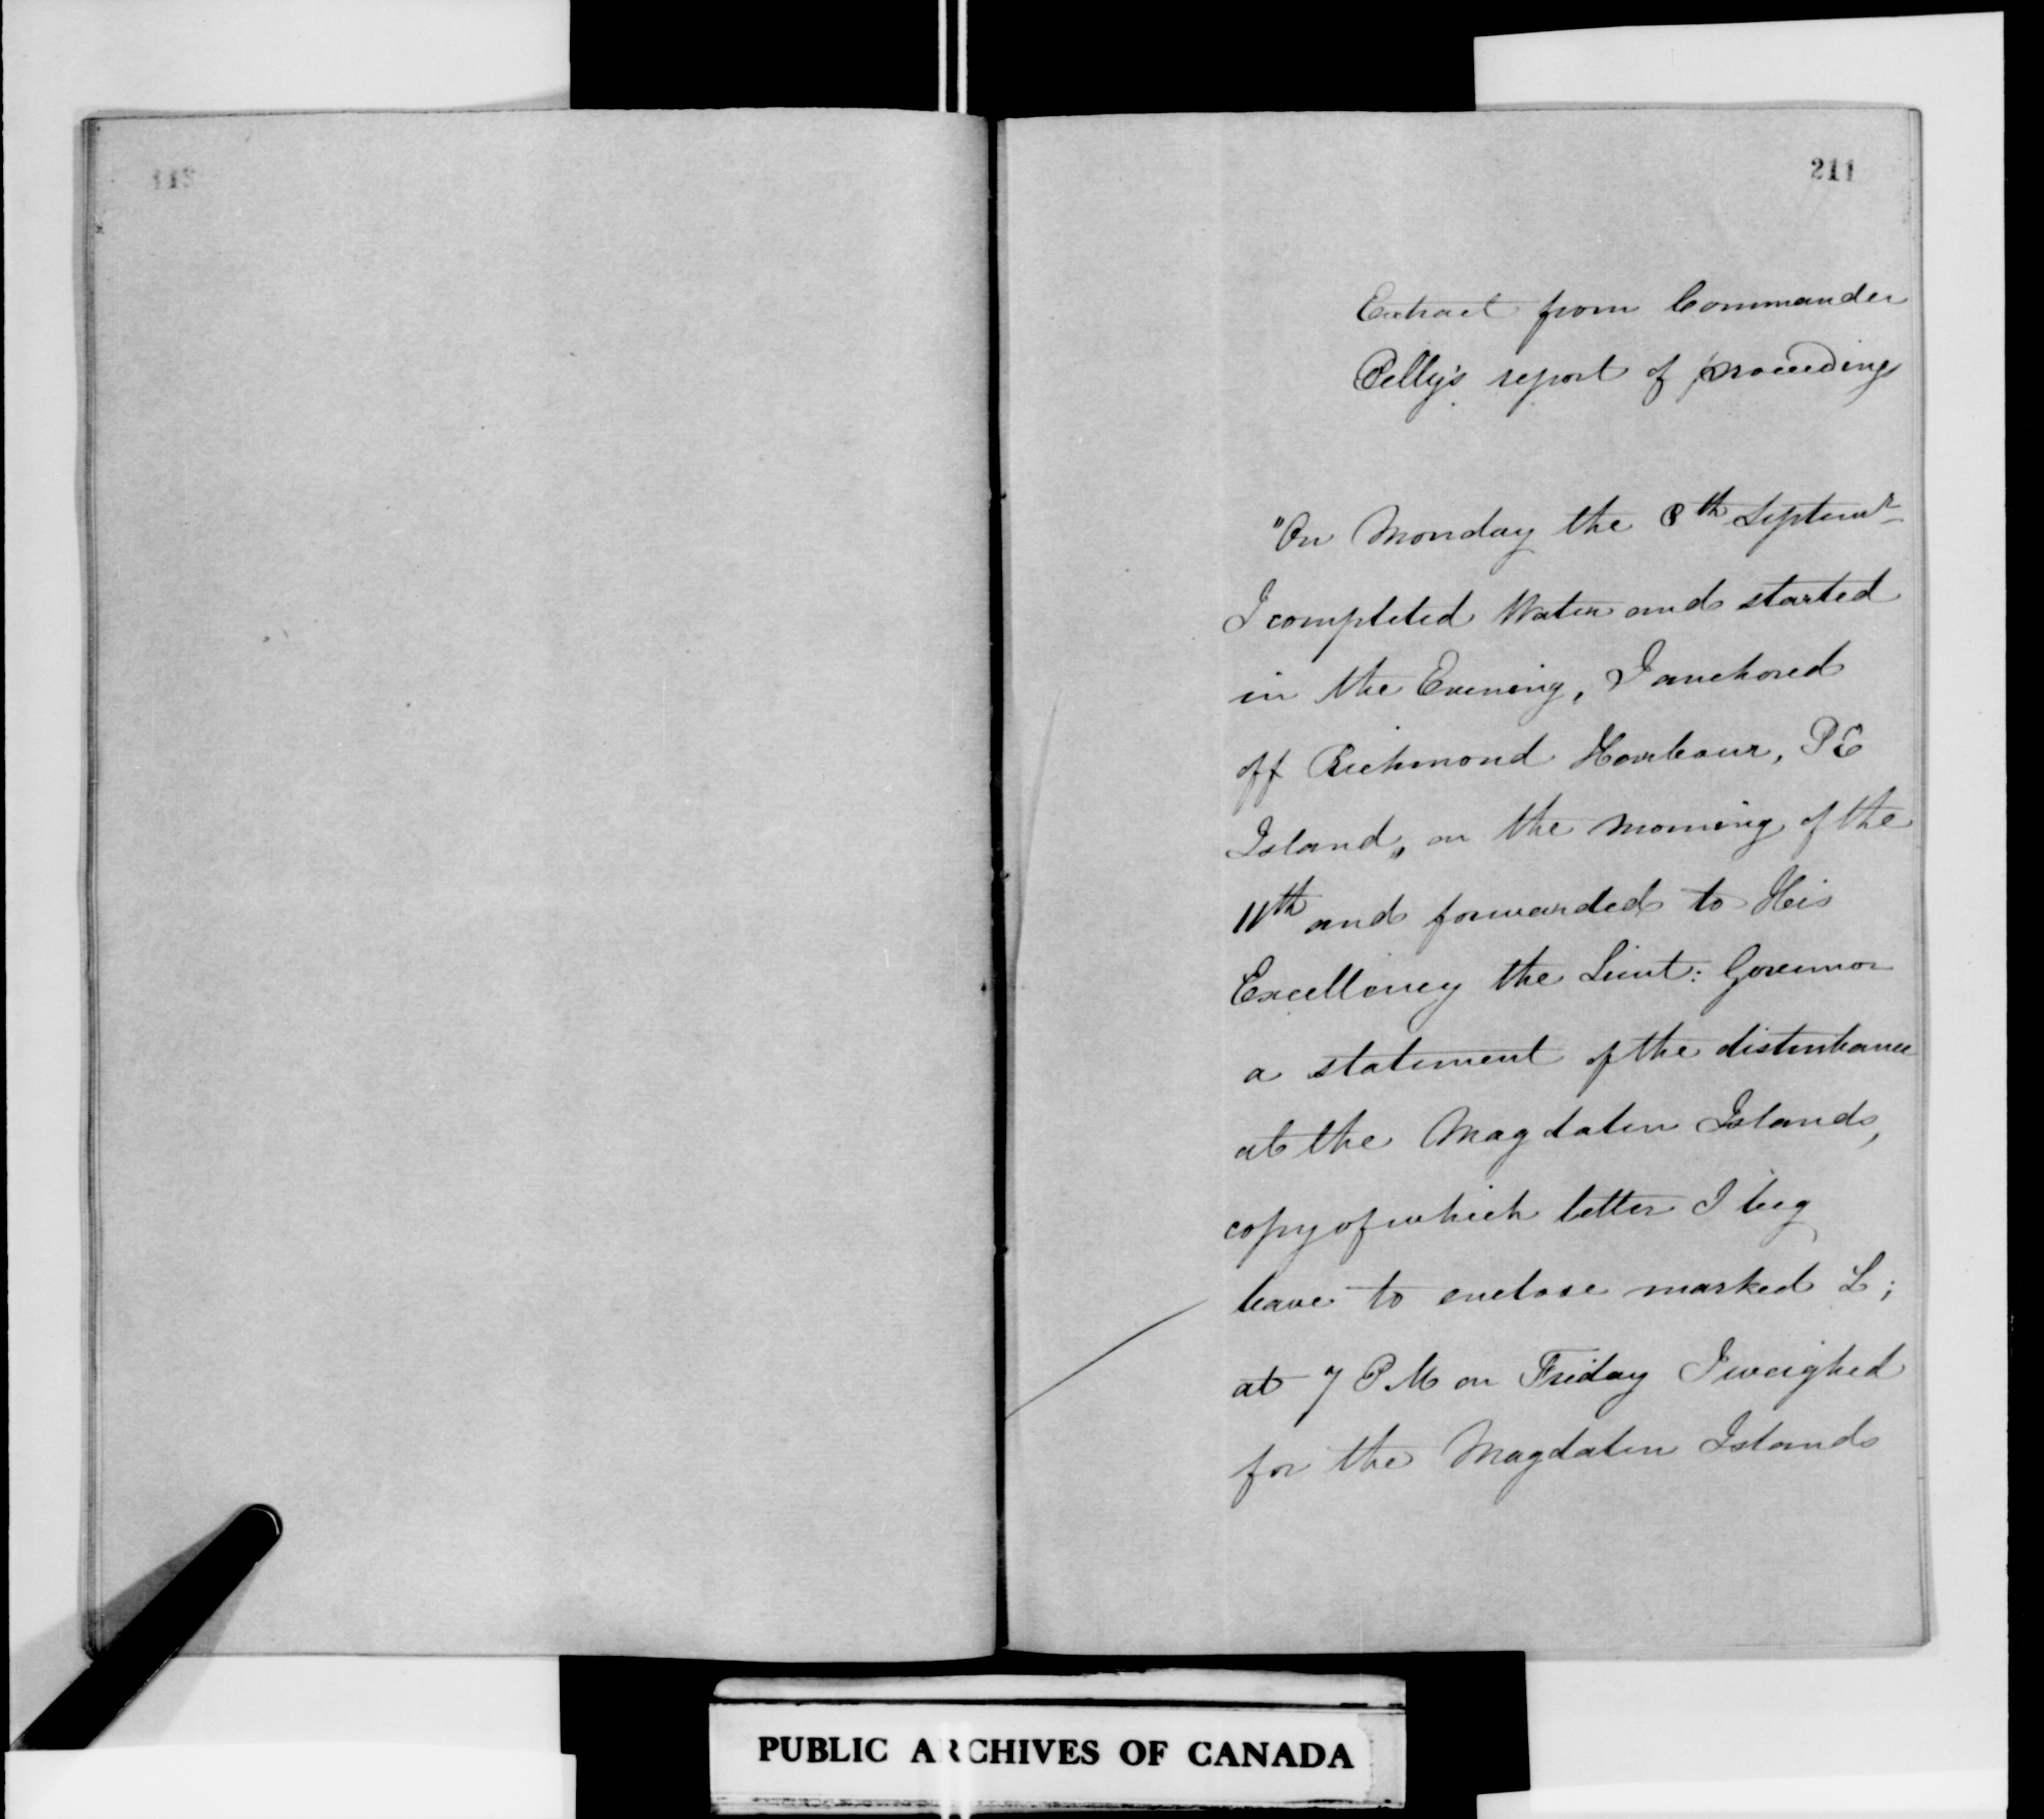 211
Extract from Commander
Pelly's report of proceedings
"On Monday the 8th Septemr
I completed Water and started
in the Evening, I anchored
off Richmond Harbour, P E
Island, on the morning of the
11th and forwarded to His
Excellency the Lieut: Governor
a statement of the disturbance
at the Magdalen Islands,
copy of which letter I beg
leave to enclose marked L;
at 7 P.M on Friday I weighed
for the Magdalen Islands
PUBLIC ARCHIVES OF CANADA